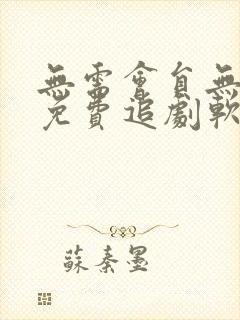 無需會自無
免費追劇軟
蘇秦墨